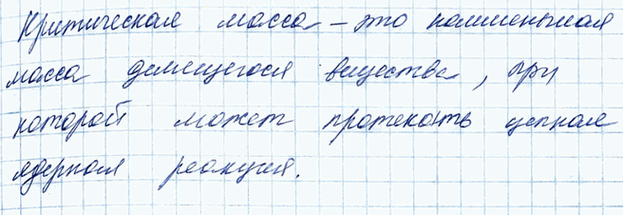 Критическая масса – это наименьшая
масса делящегося вещества, при
которой может протекать цепная
ядерная реакция.